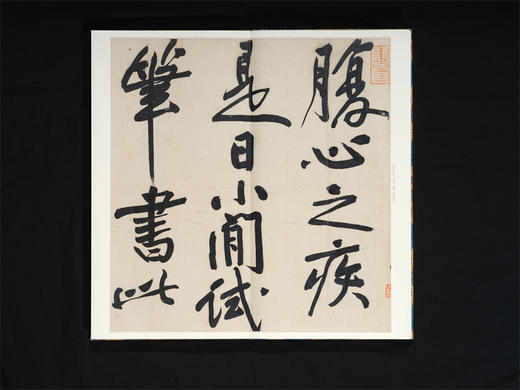 腹心之疾
是日小閒試
筆書此